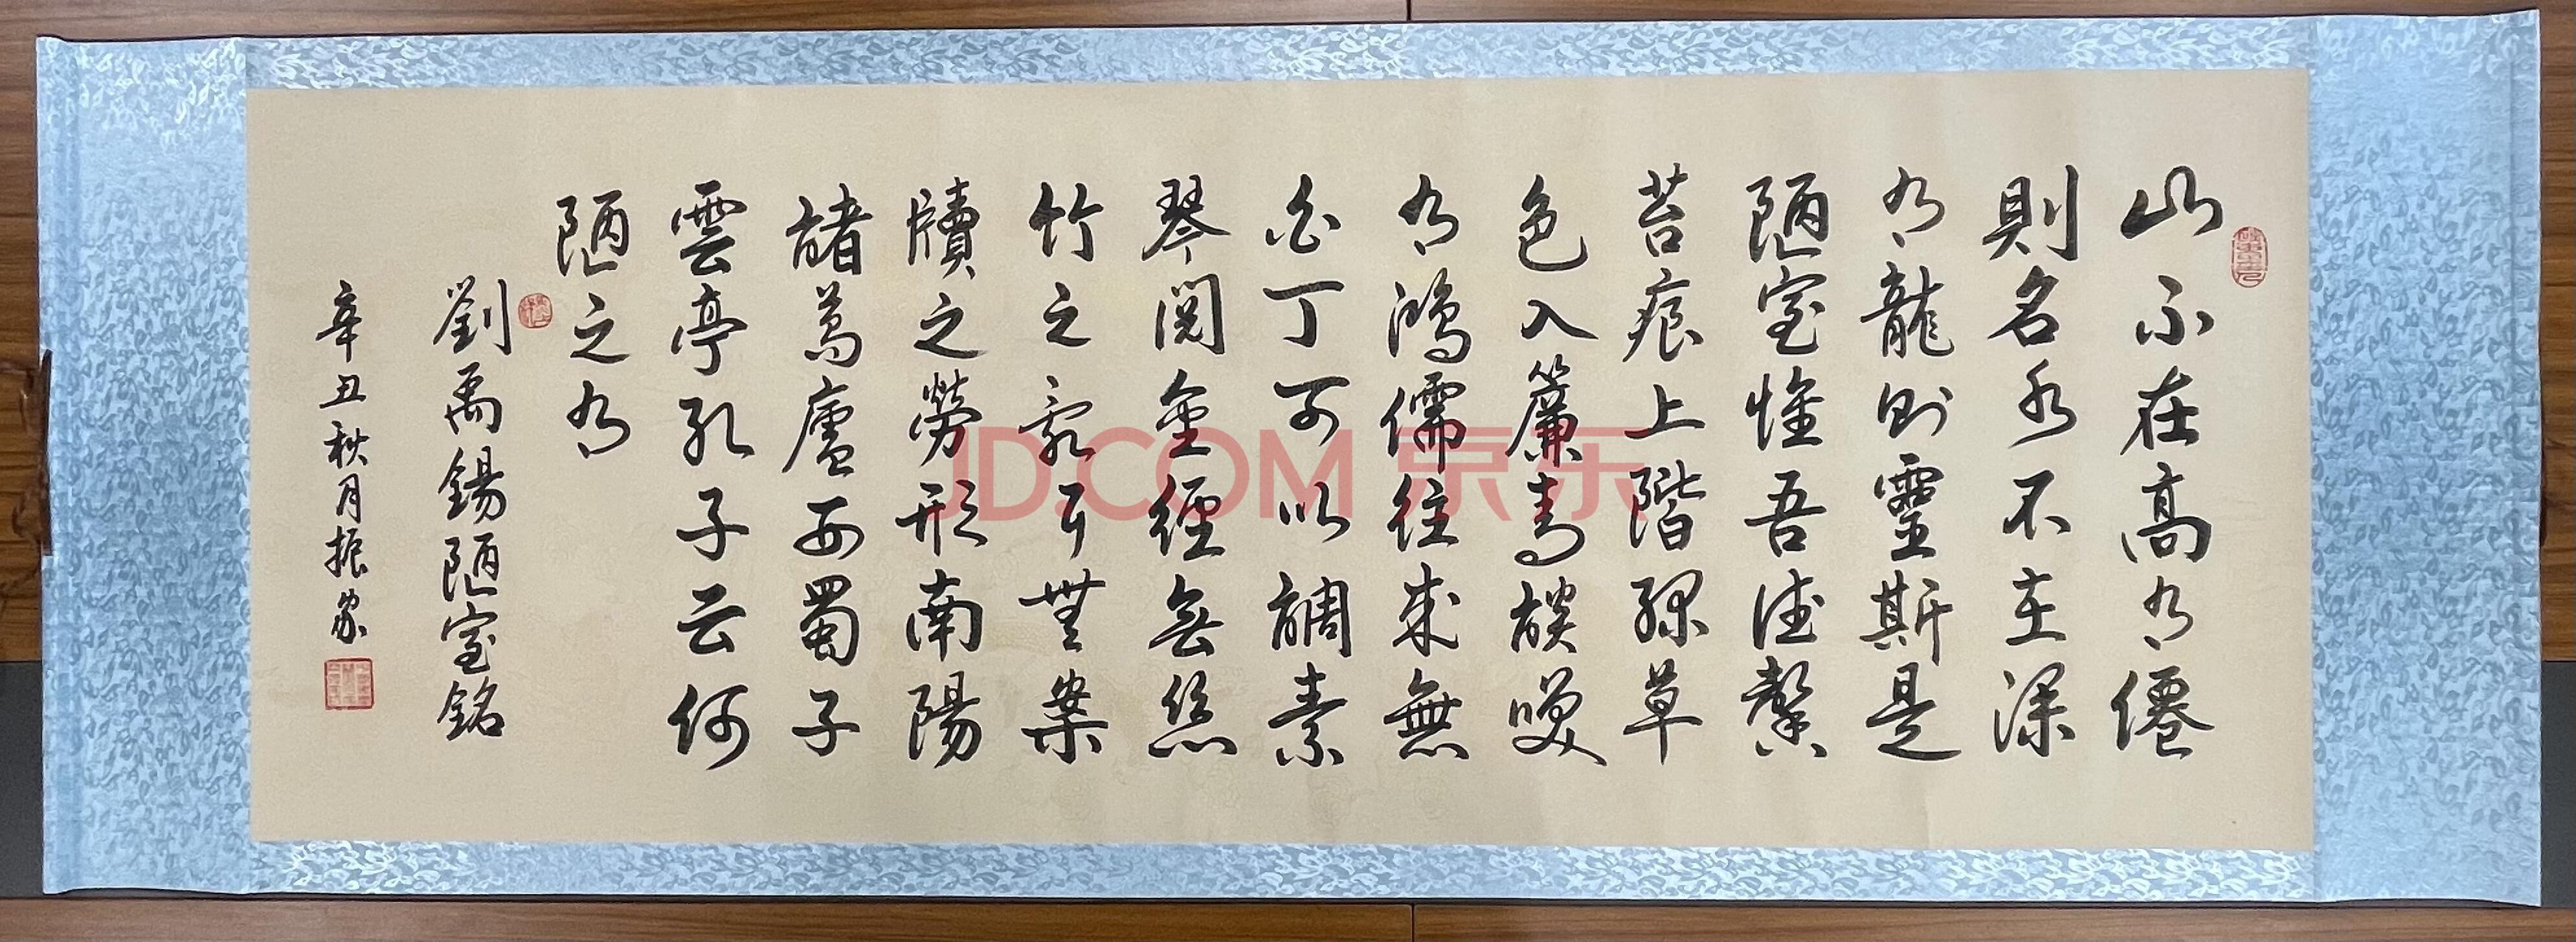 山不在高有僊
則名水不在深
有龍則靈斯是
陋室惟吾德馨
苔痕上階緑草
色入簾青談笑
有鴻儒往來無
白丁可以調素
琴閱金經無絲
竹之亂耳無案
牘之勞形南陽
諸葛廬西蜀子
雲亭孔子云何
陋之有
劉禹錫陋室銘
辛丑秋月振家
JD.COM 京东